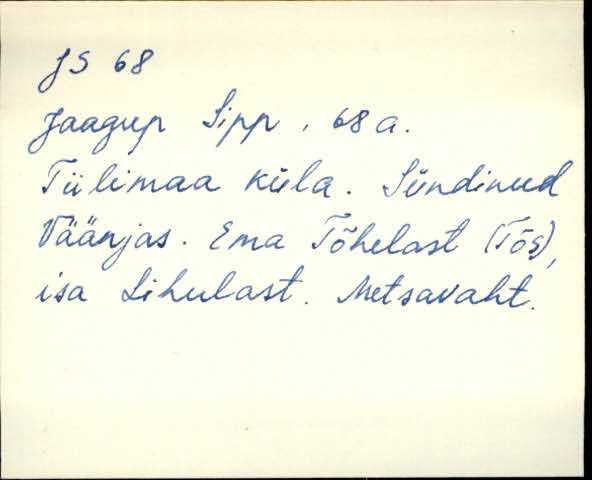 JS 68
Jaagup Sipp, 68 a.
Tiilimaa küla. Sündinud
Väänjas. Ema Tõhelast (Tõs),
isa Lihulast. Metsavaht.